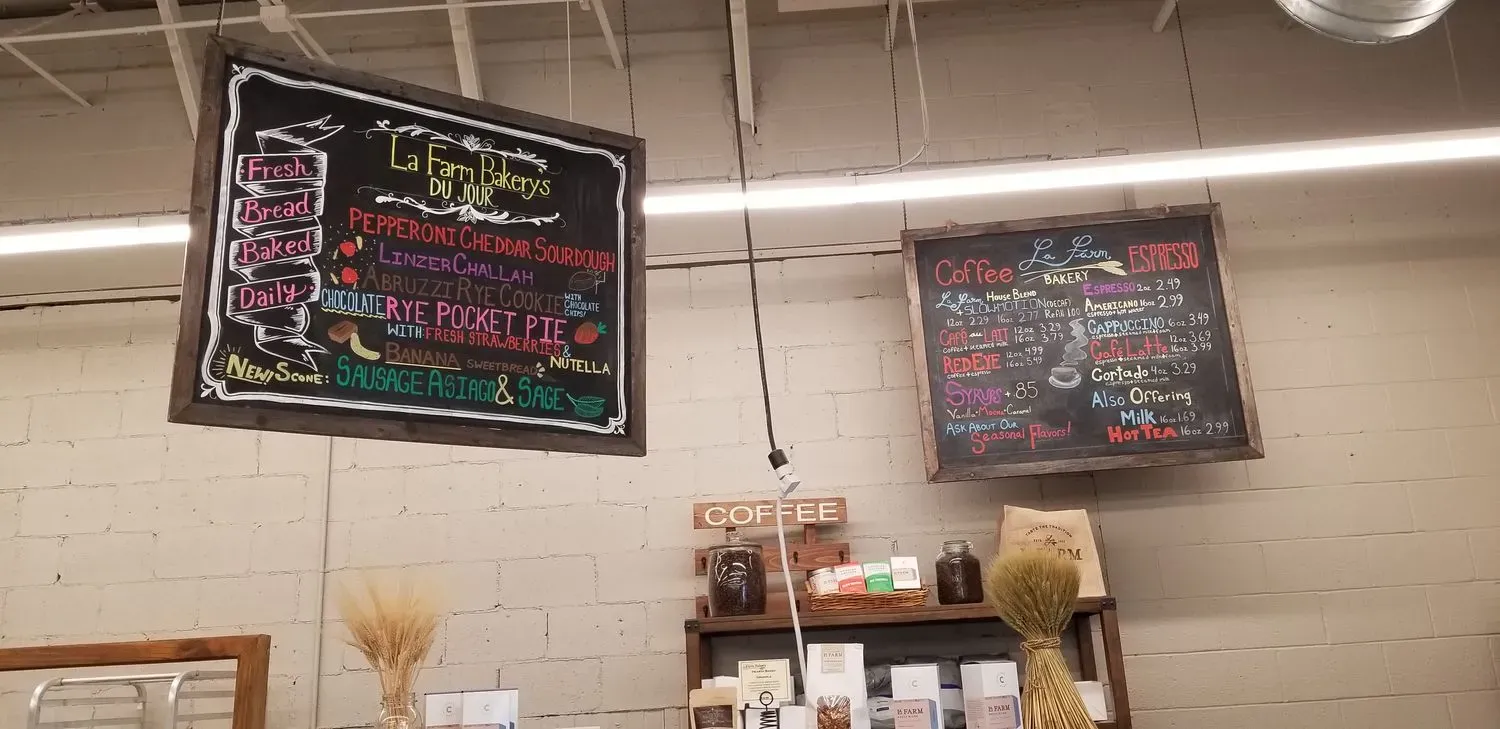 Fresh
Bread
Baked
Daily
La Farm Bakerys
DU JOUR
PEPPERONI CHEDDAR SOURDOUGH
LINZER CHALLAH
ABRUZZI RYE COOKIE WITH CHOCOLATE CHIPS!
CHOCOLATE RYE POCKET PIE
WITH: FRESH STRAWBERRIES &
NUTELLA
BANANA SWEETBREAD
NEW! SCONE: SAUSAGE ASIAGO & SAGE
La Farm
BAKERY
Coffee
La Farm House Blend
+ SLOWMOTION (DECAF)
12oz 2.29 16oz 2.77 Refill 1.00
CAFÉ au LAIT 12oz 3.29
coffee + steamed milk 16oz 3.79
RED EYE 12oz 4.99
coffee + espresso 16oz 5.49
SYRUPS + .85
Vanilla - Mocha - Caramel
ASK ABOUT OUR
Seasonal Flavors!
ESPRESSO
ESPRESSO 2oz 2.49
AMERICANO 16oz 2.99
espresso + hot water
CAPPUCCINO 6oz 3.49
espresso + steamed milk + foam
Café Latte 12oz 3.69
16oz 3.99
espresso + steamed milk + foam
Cortado 4oz 3.29
espresso + steamed milk
Also Offering
Milk 16oz 1.69
HOT TEA 16oz 2.99
COFFEE
TASTE THE TRADITION
FARM
LA FARM
LA FARM
LA FARM
C
C
C